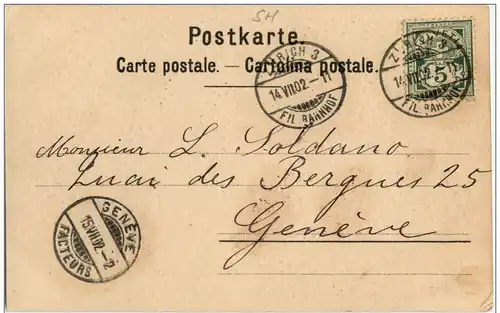 SH
Postkarte.
Carte postale. — Cartolina postale.
ZÜRICH 3
14.VII.02.-11
FIL. BAHNHOF
ZÜRICH 3
14.VII.02.-11
FIL. BAHNHOF
5
Monsieur L. Soldano
Quai des Bergues 25
Genève
GENÈVE
15.VII.02.-2
FACTEURS